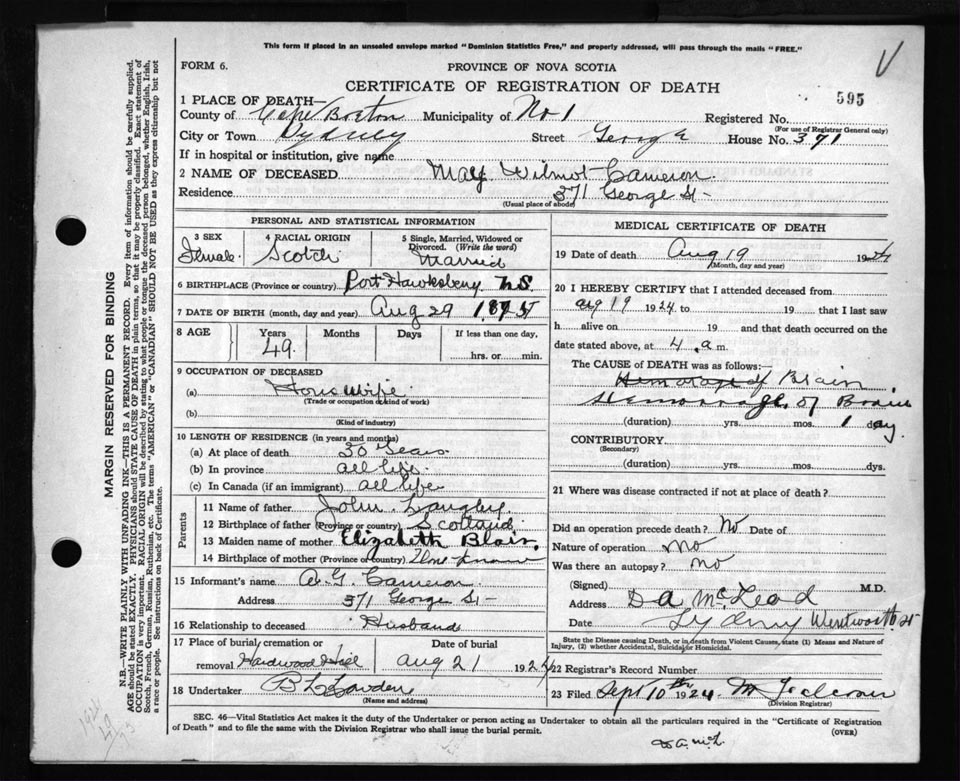 This form if placed in an unsealed envelope marked "Dominion Statistics Free," and properly addressed, will pass through the mails "FREE."
FORM 6.
PROVINCE OF NOVA SCOTIA
V
CERTIFICATE OF REGISTRATION OF DEATH
595
1 PLACE OF DEATH—
County of Cape Breton Municipality of No 1 Registered No.
(For use of Registrar General only)
City or Town Sydney Street George House No. 371
If in hospital or institution, give name
2 NAME OF DECEASED Wilmot Cameron
Residence 371 George St
(Usual place of abode)
PERSONAL AND STATISTICAL INFORMATION
3 SEX
Female
4 RACIAL ORIGIN
Scotch
5 Single, Married, Widowed or Divorced. (Write the word)
Married
6 BIRTHPLACE (Province or country) Port Hawksbery N.S.
7 DATE OF BIRTH (month, day and year) Aug 29 1875
8 AGE
Years
49
Months
Days
If less than one day,
hrs. or min.
9 OCCUPATION OF DECEASED
(a) Housewife
(Trade or occupation or kind of work)
(b)
(Kind of industry)
10 LENGTH OF RESIDENCE (in years and months)
(a) At place of death 30 Years
(b) In province all life
(c) In Canada (if an immigrant) all life
Parents
11 Name of father John Langley
12 Birthplace of father (Province or country) Scotland
13 Maiden name of mother Elizabeth Blair
14 Birthplace of mother (Province or country) Know
15 Informant's name A. G. Cameron
Address 371 George St
16 Relationship to deceased Husband
17 Place of burial, cremation or removal Hardwood Hill
Date of burial
Aug 21 1924
18 Undertaker
(Name and address)
MEDICAL CERTIFICATE OF DEATH
19 Date of death Aug 19 1924
(Month, day and year)
20 I HEREBY CERTIFY that I attended deceased from
Aug 19 1924 to 19 that I last saw
h alive on 19 and that death occurred on
date stated above, at 4 a m.
The CAUSE OF DEATH was as follows:—
Hemorage of Brain
Hemorrage of Brain
(duration) yrs. mos. 1 day
CONTRIBUTORY.
(Secondary)
(duration) yrs. mos. dys.
21 Where was disease contracted if not at place of death?
Did an operation precede death? No Date of
Nature of operation No
Was there an autopsy? No
(Signed) D A McLeod M.D.
Address Sydney Wentworth St
Date
State the Disease causing Death, or in death from Violent Causes, state (1) Means and Nature of Injury, (2) whether Accidental, Suicidal or Homicidal.
22 Registrar's Record Number
23 Filed Sept 10th 1924 M Falconer
(Division Registrar)
SEC. 46—Vital Statistics Act makes it the duty of the Undertaker or person acting as Undertaker to obtain all the particulars required in the "Certificate of Registration
of Death" and to file the same with the Division Registrar who shall issue the burial permit.
(OVER)
D. A. McL.
MARGIN RESERVED FOR BINDING
N.B.—WRITE PLAINLY WITH UNFADING INK—THIS IS A PERMANENT RECORD. Every item of information should be carefully supplied.
AGE should be stated EXACTLY. PHYSICIANS should STATE CAUSE OF DEATH in plain terms, so that it may be properly classified. Exact statement of
OCCUPATION is very important. RACIAL ORIGIN will be described by stating to what people or tongue the deceased person belonged, whether English, Irish,
Scotch, French, German, Russian, Ruthenian, etc. The terms "AMERICAN" or "CANADIAN" SHOULD NOT BE USED as they express citizenship but not
a race or people. See instructions on back of Certificate.